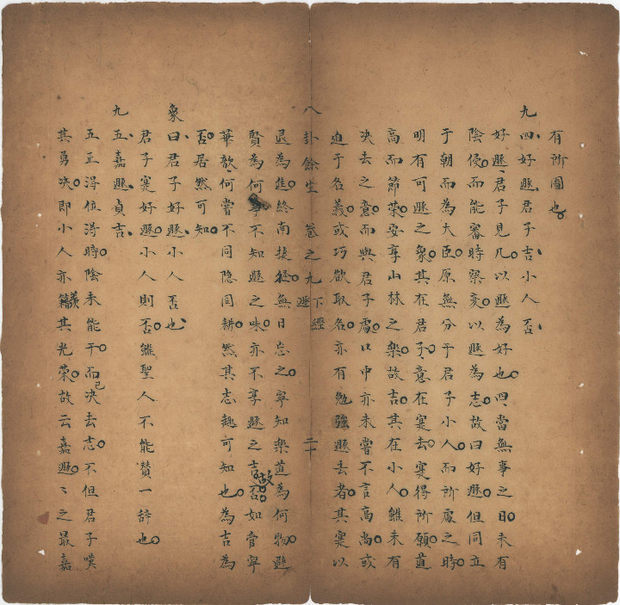 有所圖也
九四好遯君子吉小人否
好遯君子見几以遯為好也四當無事之日未有
陰侵而能審時察变以遯為志故曰好遯但同立
于朝而為大臣原無分于君子小人而所處之時
明有可遯之象其在君子意在寔去寔得所願道
高而節荣安享山林之樂故吉其在小人雖未有
决去之意而與君子處口中亦未嘗不言高尚或
迫于名義或巧欲取名亦有勉强遯去者其寔以
八卦餘生 卷之九下經遯 二十
退為進終南捷徑無日忘之寧知樂道為何物遯
賢為何事不知遯之味亦不享遯之吉故否如管寧
華歆何嘗不同隐同耕然其志趣可知也為吉為
否居然可知
象曰君子好遯小人否也
君子寔好遯小人則否雖聖人不能贊一辞也
九五嘉遯貞吉
五正得位得時陰未能干而已决去志不但君子嘆
其勇决即小人亦羨其光荣故云嘉遯〻之最嘉